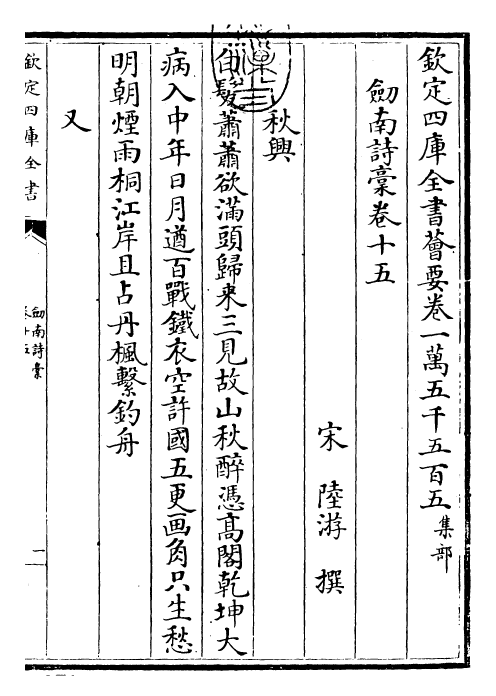 欽定四庫全書薈要卷一萬五千五百五集部
劔南詩藳卷十五
宋陸游撰
秋興
白髮蕭蕭欲滿頭歸来三見故山秋醉憑髙閣乾坤大
病入中年日月遒百戰鐵衣空許國五更画角只生愁
明朝煙雨桐江岸且占丹楓繫釣舟
又
欽定四庫全書
劔南詩藳
卷十五
一